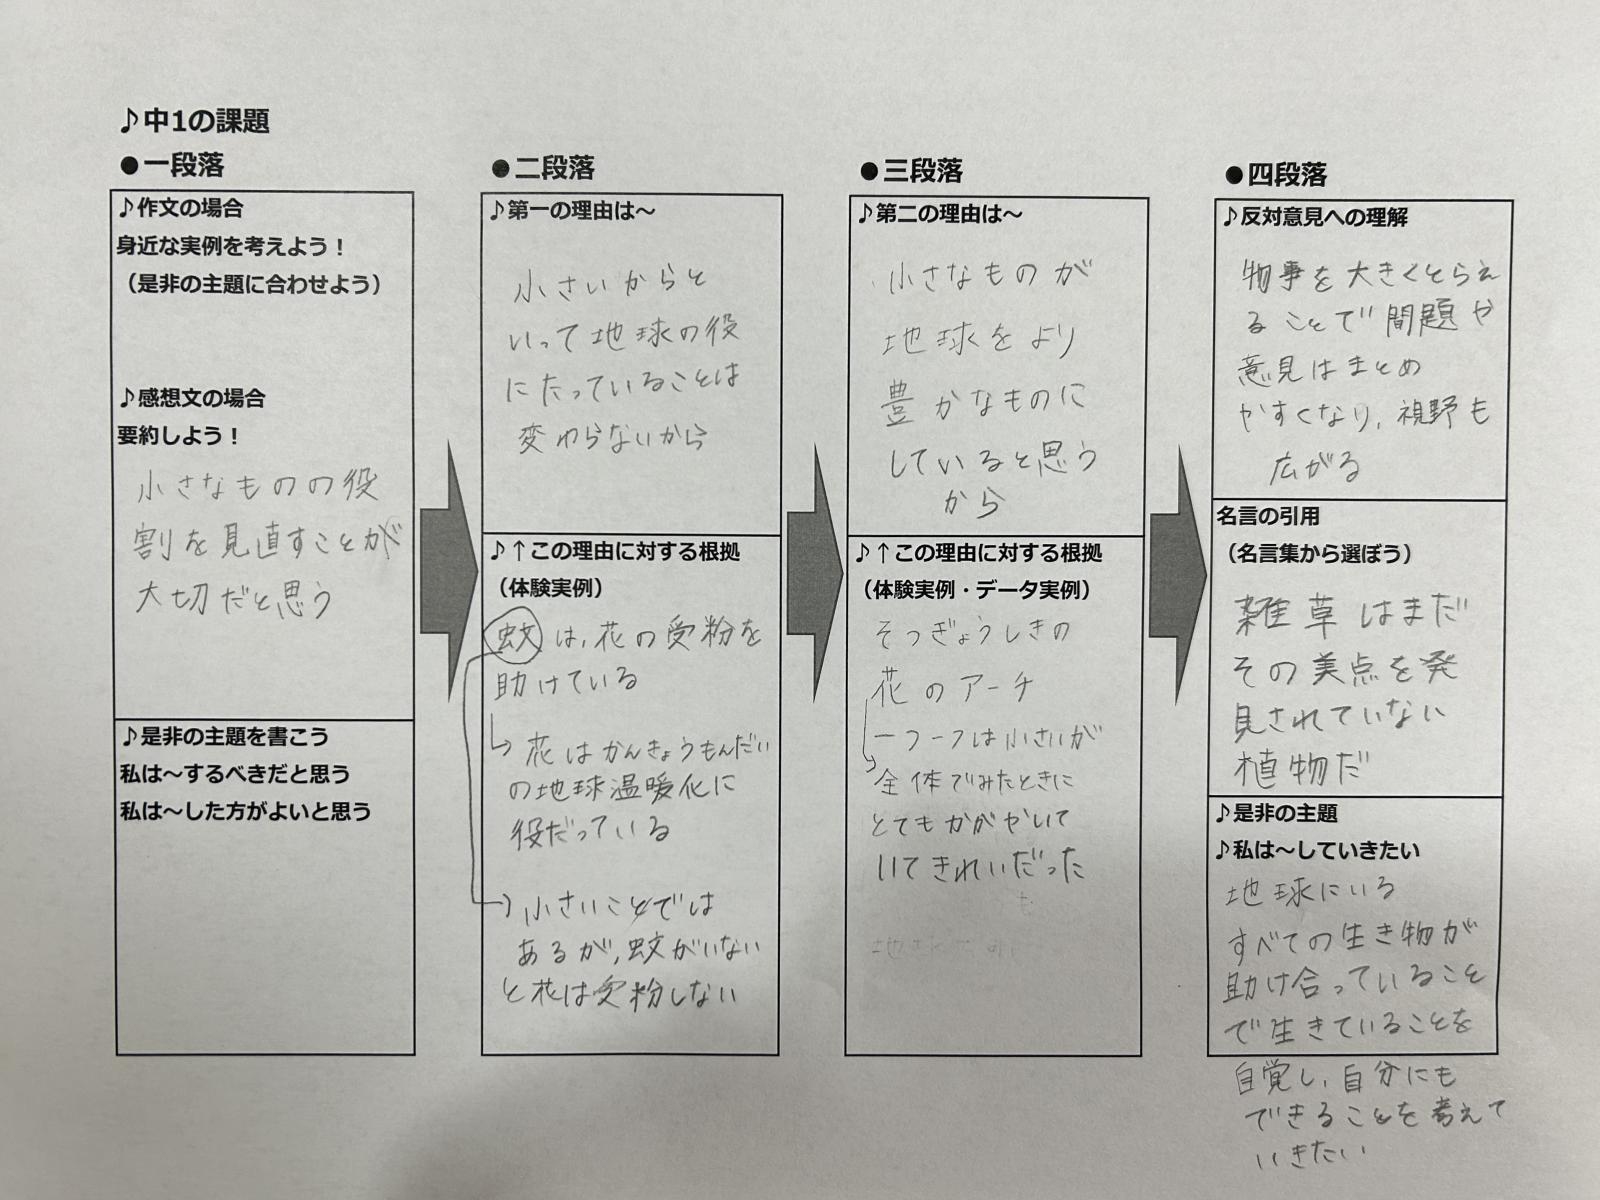 ♪中1の課題
●一段落
♪作文の場合
身近な実例を考えよう！
（是非の主題に合わせよう）
♪感想文の場合
要約しよう！
小さなものの役
割を見直すことが
大切だと思う
♪是非の主題を書こう
私は～するべきだと思う
私は～した方がよいと思う
●二段落
♪第一の理由は～
小さいからと
いって地球の役
にたっていることは
変わらないから
♪↑この理由に対する根拠
（体験実例）
蚊は,花の受粉を
助けている
花はかんきょうもんだい
の地球温暖化に
役だっている
小さいことでは
あるが,蚊がいない
と花は受粉しない
●三段落
♪第二の理由は～
小さなものが
地球をより
豊かなものに
していると思う
から
♪↑この理由に対する根拠
（体験実例・データ実例）
そつぎょうしきの
花のアーチ
一つ一つは小さいが
全体でみたときに
とてもかがやいて
いてきれいだった
●四段落
♪反対意見への理解
物事を大きくとらえ
ることで問題や
意見はまとめ
やすくなり,視野も
広がる
名言の引用
（名言集から選ぼう）
雑草はまだ
その美点を発
見されていない
植物だ
♪是非の主題
♪私は～していきたい
地球にいる
すべての生き物が
助け合っていること
で生きていることを
自覚し,自分にも
できることを考えて
いきたい